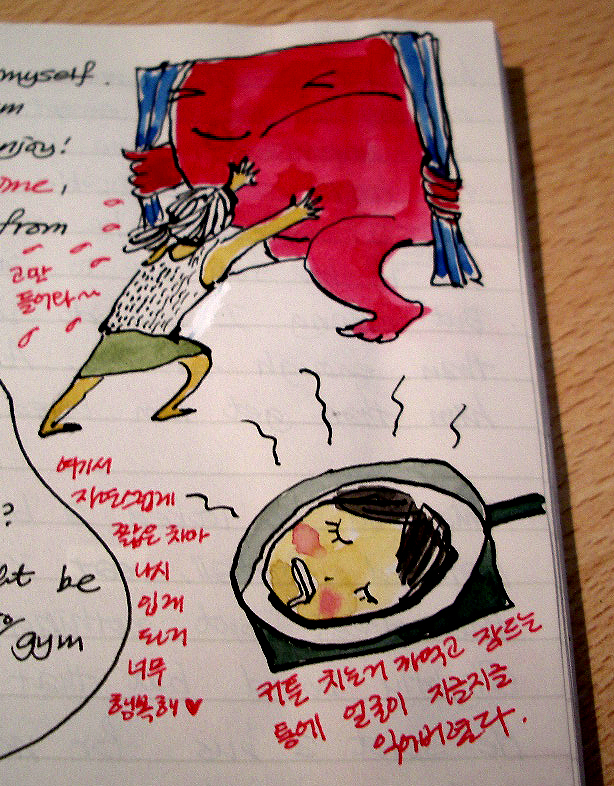 myself.
m
njoy!
ome,
from
고만
들어라~
여기서
자연스럽게
짧은 치마
나시
입게
너무
행복해♥
?
ht be
gym
커튼 치는거 까먹고 잠드는
통에 얼굴이 지글지글
익어버렸다.